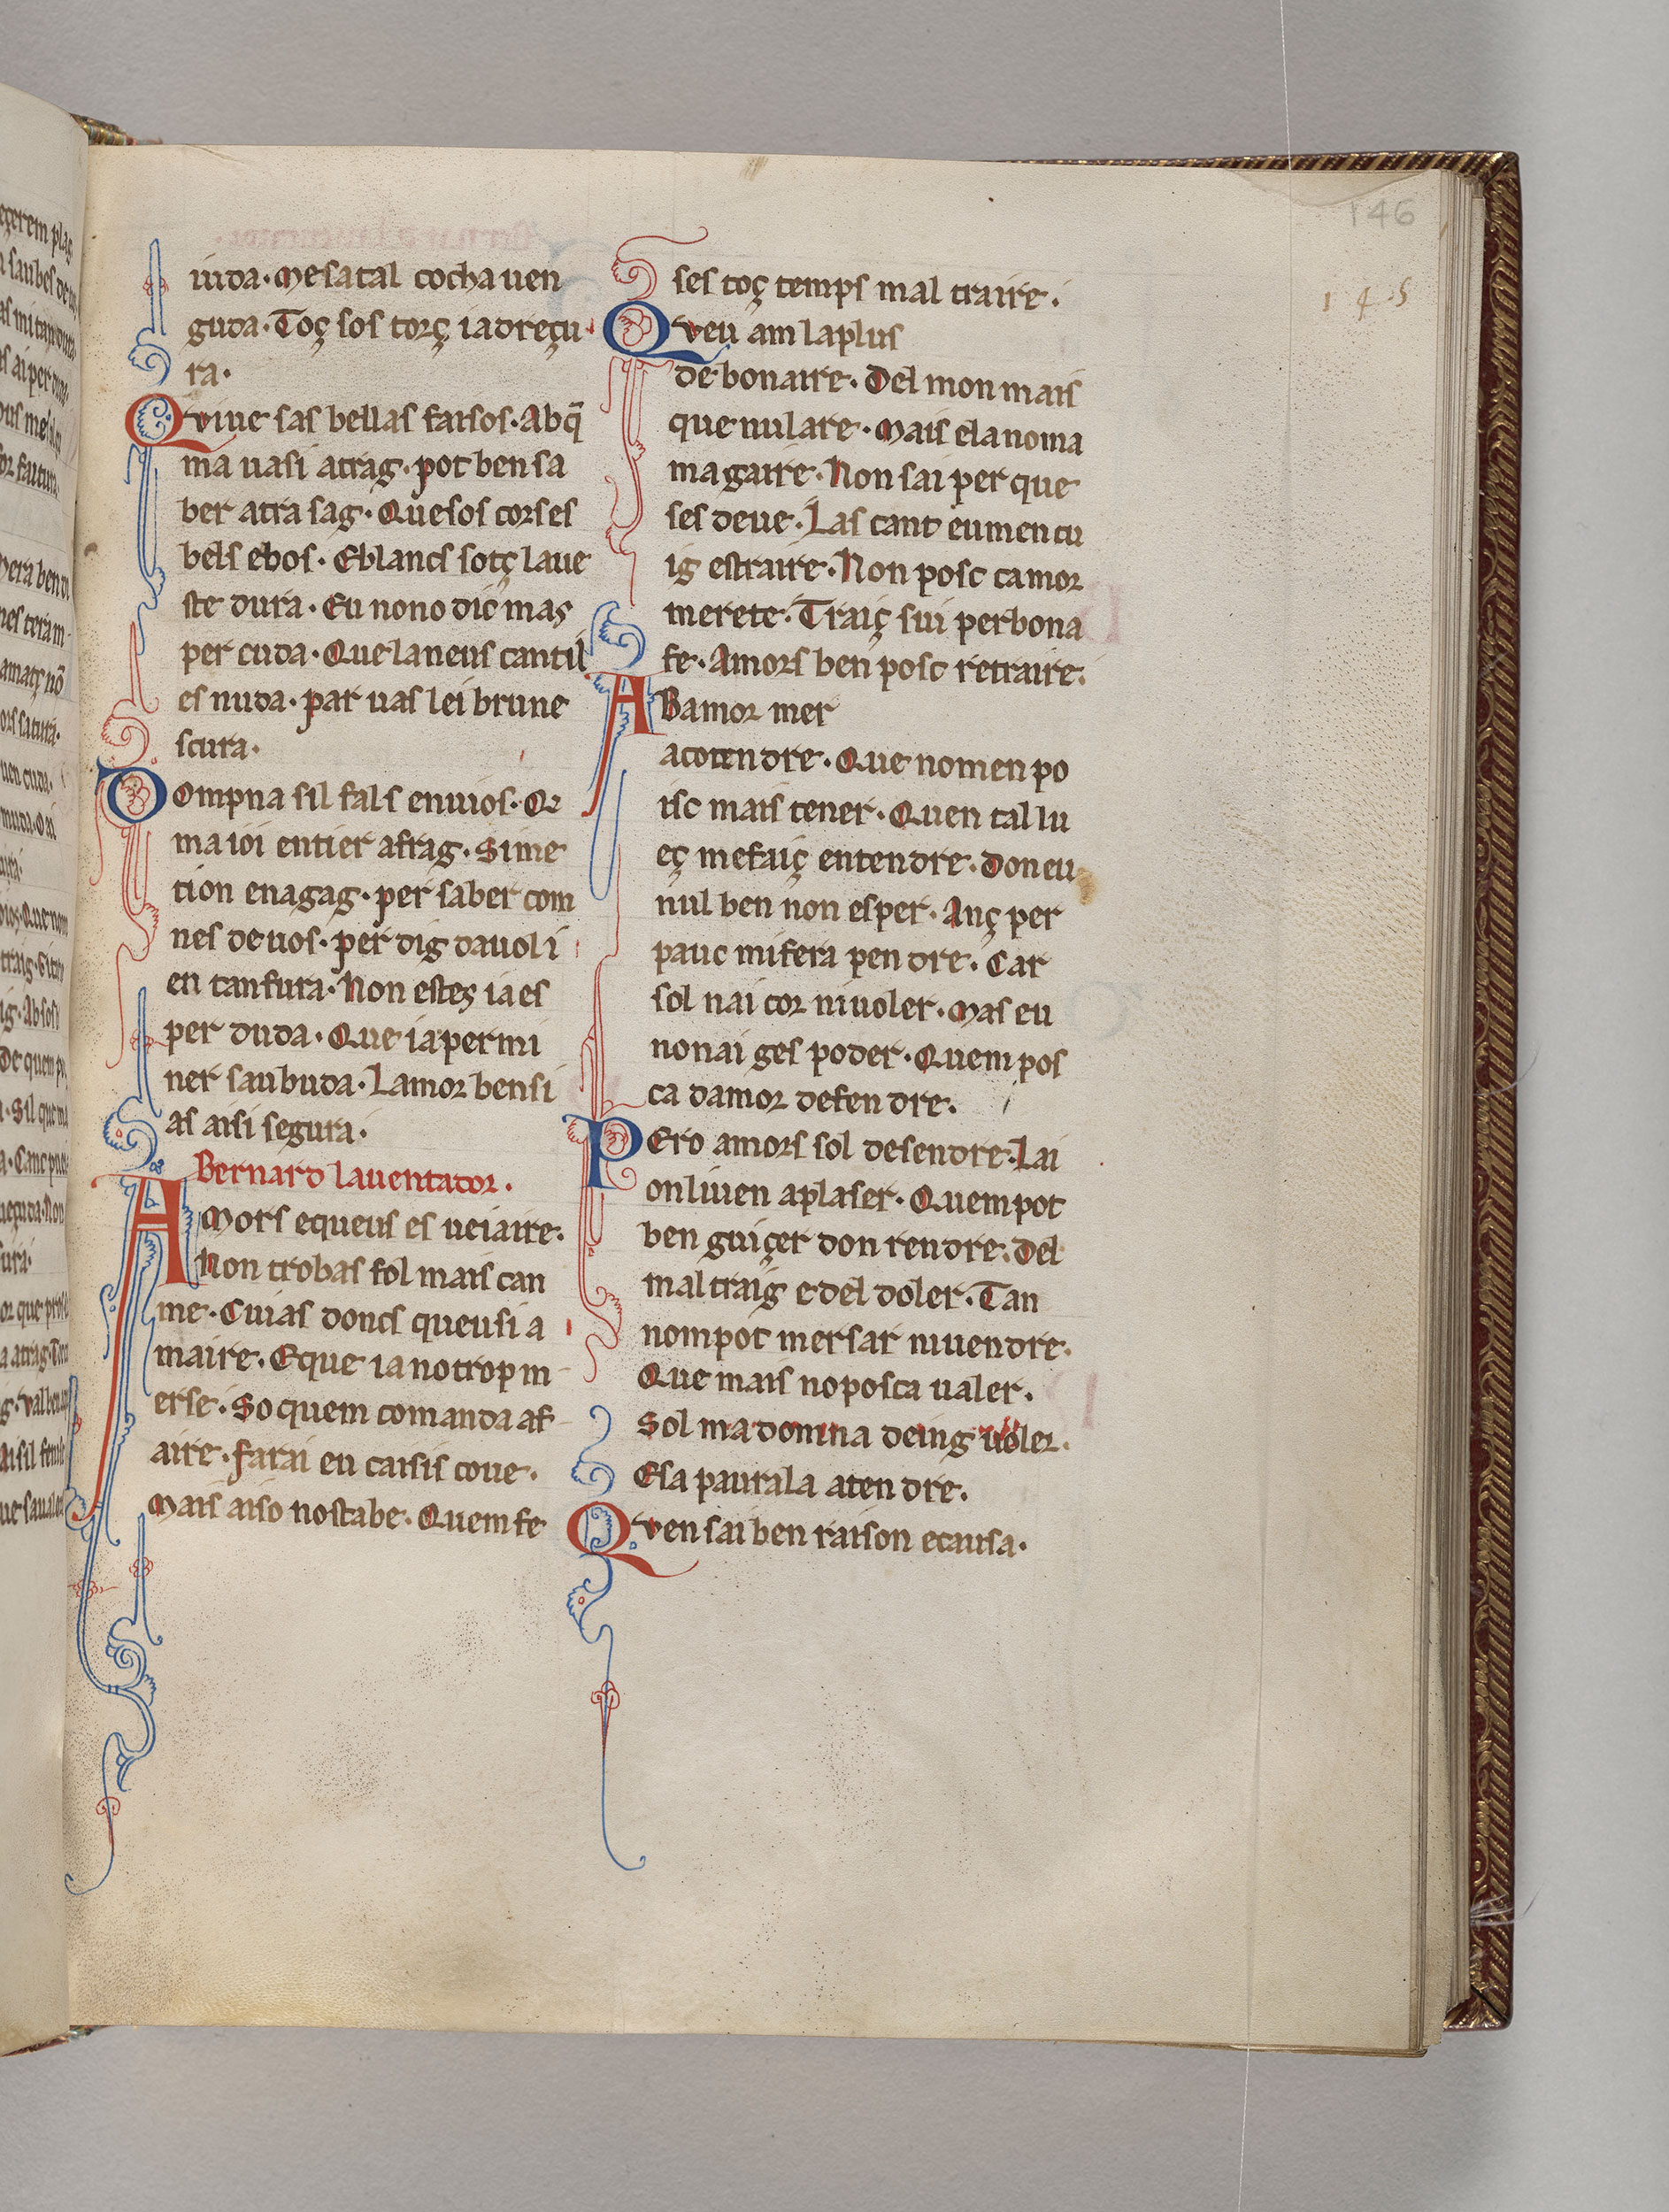 146
145
iuda. Mesatal cocha uen
guda. Toç sos torç iadreçu
ra.
Qviue sas bellas faisos. Abq̃
ma uasi atrag. pot ben sa
ber atra sag. Quesos corses
bels ebos. Eblancs sotç laue
ste dura. Eu nono dic mas
per cuda. Quelaneus cantil
es nuda. par uas lei brune
scura.
Dompna sil fals enuios. Qe
ma ioi entier afrag. Sime
tion enagag. per saber com
nes de uos. per dig dauol i
en tanfura. Non estes ia es
per duda. Que ia per mi
ner saubuda. Lamor bensi
as aisi segura.
Bernard lauentador.
AMors equeus es ueiaire.
Non trobas fol mais can
me. Cuias doncs queusi a
maire. Eque ia no trop m
erse. So quem comanda af
aire. Farai eu caisis coue.
Mais aiso nostabe. Quem fe
ses toç temps mal traire.
Qveu am la plus
de bonaire. Del mon mais
que nulare. Mais ela noma
ma gaire. Non sai per que
ses deue. Las cant eumen cu
ig estraire. Non posc camor
merete. Traiç sui perbona
fe. Amors ben posc retraire.
ABamor mer
acotendre. Que nomen po
isc mais tener. Quen tal lu
eç mefaiç entendre. don eu
nul ben non esper. Anç per
pauc mifera pendre. Car
sol nai cor ni uoler. Mas eu
non ai ges poder. Quem pos
ca damor defendre.
PEro amors sol desendre. Lai
on liuen aplaser. Quem pot
ben guiçer don rendre. del
mal traig e del doler. Tan
nom pot mersar niuendre.
Que mais no posca ualer.
Sol madomna deing uoler.
Esa paurala atendre.
Qven sai ben raison ecausa.